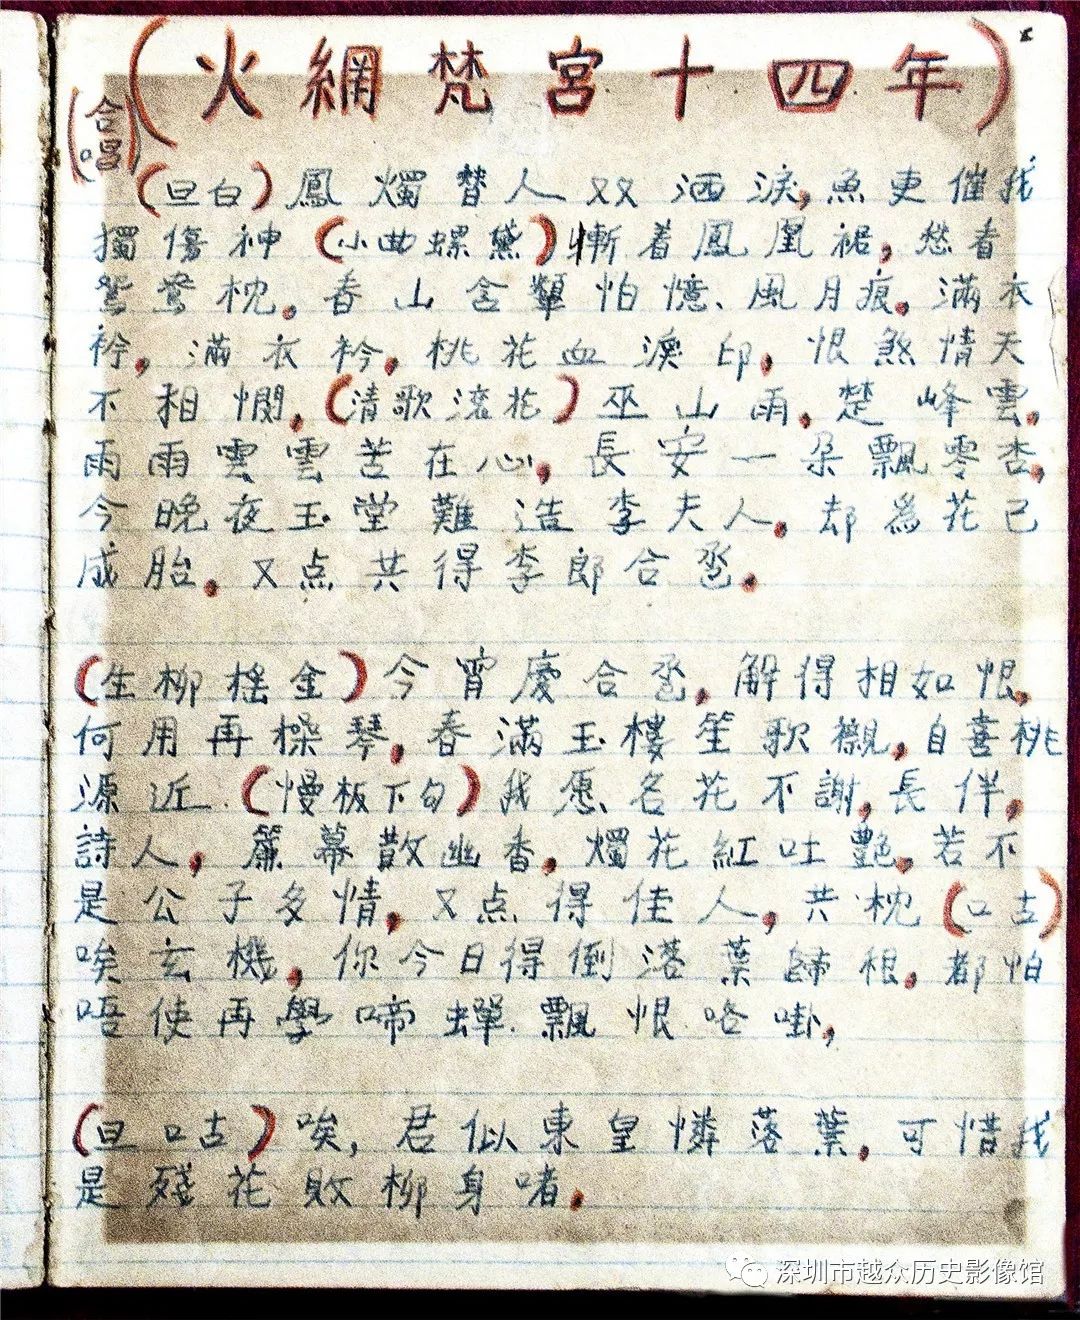 (火網梵宮十四年)
(合唱)
(旦白)鳳燭替人双洒淚,魚更催我
獨傷神(小曲螺黛)慚着鳳凰裙,愁看
鴛鴦枕。春山含顰怕憶、風月痕。滿衣
衿,滿衣衿,桃花血淚印,恨煞情天
不相憫,(清歌滾花)巫山雨,楚峰雲,
雨雨雲雲苦在心,長安一朵飄零杏,
今晚夜玉堂難造李夫人,却為花已
成胎。又点共得李郎合巹。
(生柳搖金)今宵慶合巹,解得相如恨,
何用再操琴,春滿玉樓笙歌襯,自喜桃
源近.(慢板下句)我愿名花不謝,長伴,
詩人,簾幕散幽香,燭花紅吐艷,若不
是公子多情,又点得佳人,共枕(口古)
唉玄機,你今日得倒落葉歸根,都怕
唔使再學啼蟬飄恨咯啩,
(旦口古)唉,君似東皇憐落葉,可惜我
是殘花敗柳身啫,
深圳市越众历史影像馆